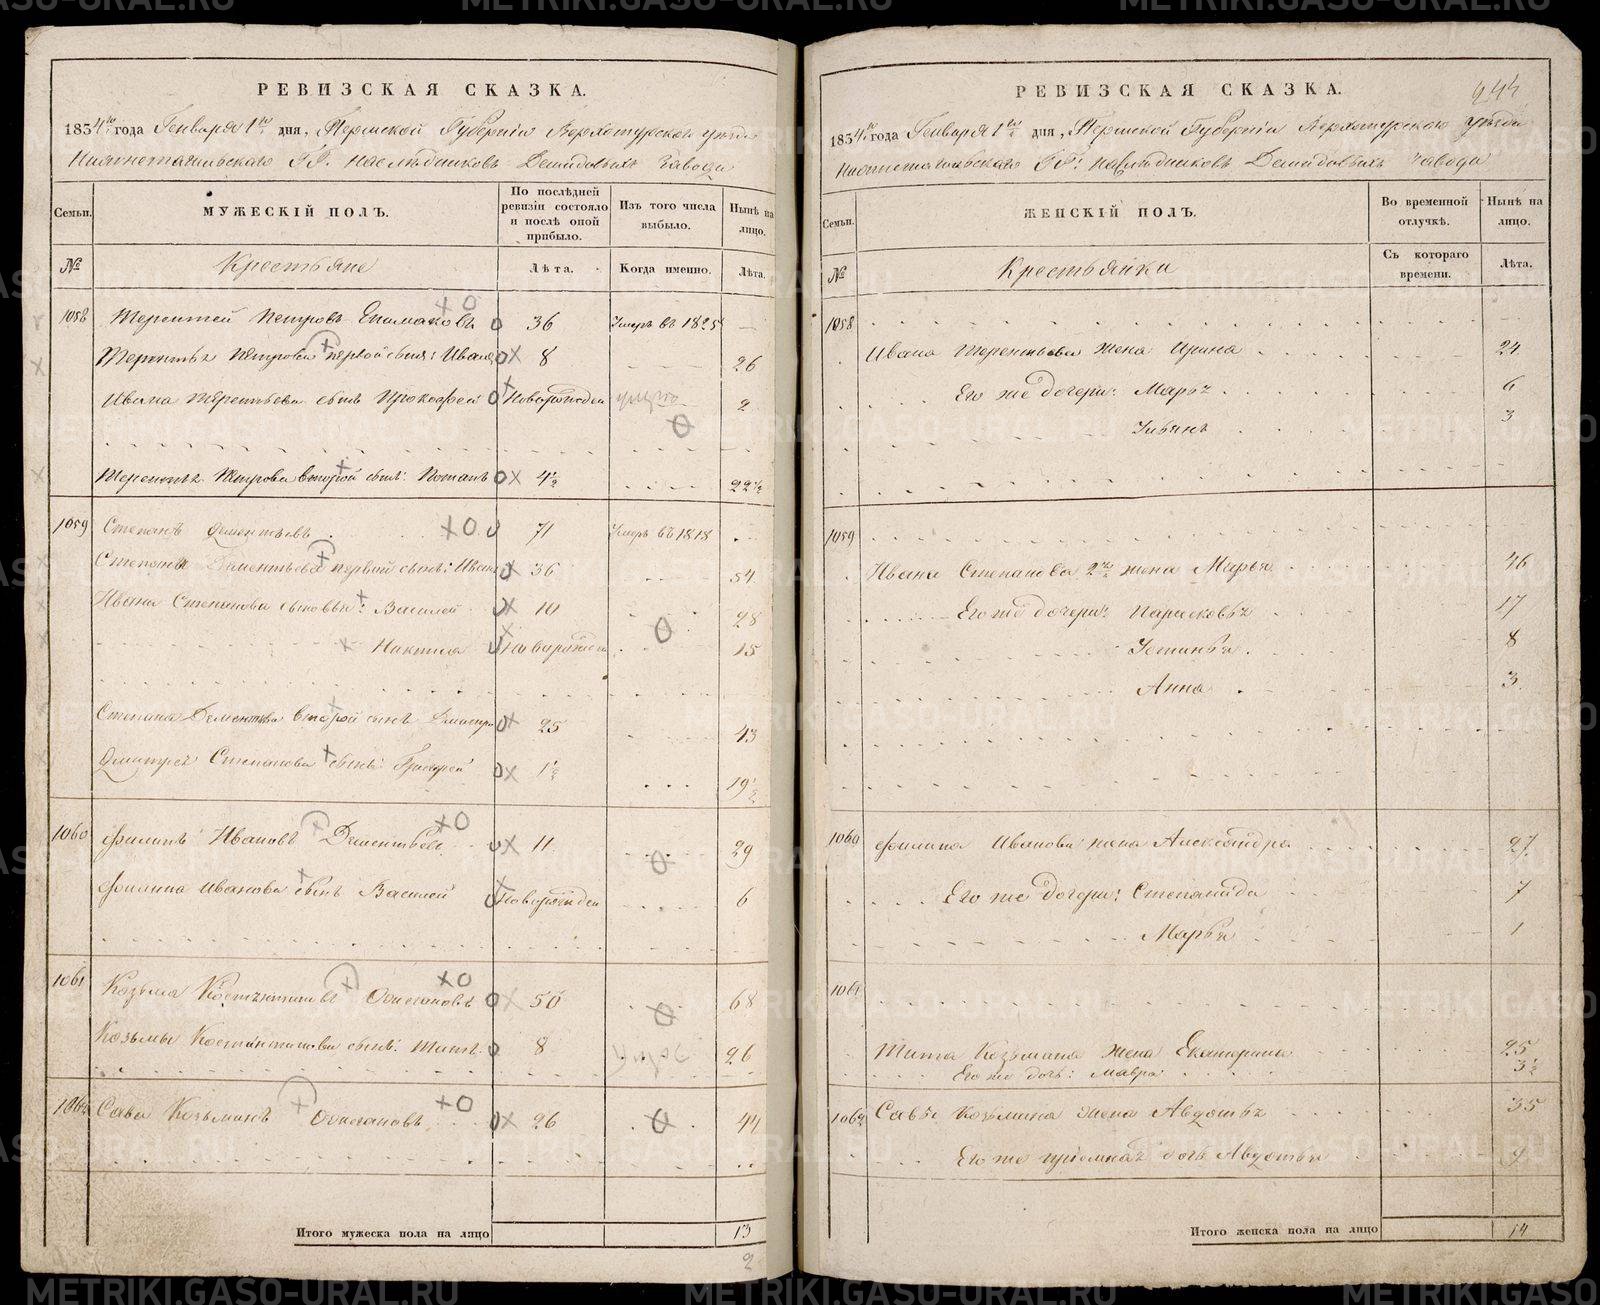 РЕВИЗСКАЯ СКАЗКА.
1834го года Генваря 1го дня, Пермской Губерніи Верхотурскаго уѣзда
Нижнетагильскаго ГГ. Наслѣдниковъ Демидовыхъ Завода
Семьи.
МУЖЕСКІЙ ПОЛЪ.
По послѣдней ревизіи состояло и послѣ оной прибыло.
Изъ того числа выбыло.
Нынѣ на лицо.
№
Крестьяне
Лѣта.
Когда именно.
Лѣта.
1058 Терентей Петровъ 36 Умеръ въ 1825
Терентья Петрова первой сынъ: Иванъ 8 26
Ивана Терентьева сынъ Прокофей Новорожден 2
Терентья Петрова второй сынъ: Потапъ 4½ 22½
1059 Степанъ Дементьевъ 71 Умеръ въ 1818
Степана Дементьева первый сынъ: Иванъ 36 54
Ивана Степанова сыновья: Василей 10 28
Никита Новорожден 15
Степана Дементьева второй сынъ Дмитрей 25 43
Дмитрея Степанова сынъ: Григорей 1½ 19½
1060 Филипъ Ивановъ Дементьевъ 11 29
Филипа Иванова сынъ Василей Новорожден 6
1061 Козьма Костентиновъ 50 68
Козьмы Костентинова сынъ: Титъ 8 26
1062 Сава Козьминъ 26 44
Итого мужеска пола на лицо 13
2
РЕВИЗСКАЯ СКАЗКА.
244
1834го года Генваря 1го дня, Пермской Губерніи Верхотурскаго уѣзда
Нижнетагильскаго ГГ. Наслѣдниковъ Демидовыхъ Завода
Семьи.
ЖЕНСКІЙ ПОЛЪ.
Во временной отлучкѣ.
Нынѣ на лицо.
№
Крестьянки
Съ котораго времени.
Лѣта.
1058
Ивана Терентьева жена Ирина 24
Его же дочери: Марья 6
Ульяна 3
1059
Ивана Степанова 2я жена Марья 46
Его же дочери: Парасковья 17
Устинья 8
Анна 3
1060 Филипа Иванова жена Александра 27
Его же дочери: Степанида 7
Марья 1
1061
Тита Козьмина жена Екатерина 25
Его же дочь: Мавра 3½
1062 Савы Козьмина жена Авдотья 35
Его же пріемная дочь Авдотья
Итого женска пола на лицо 14
METRIKI.GASO-URAL.RU